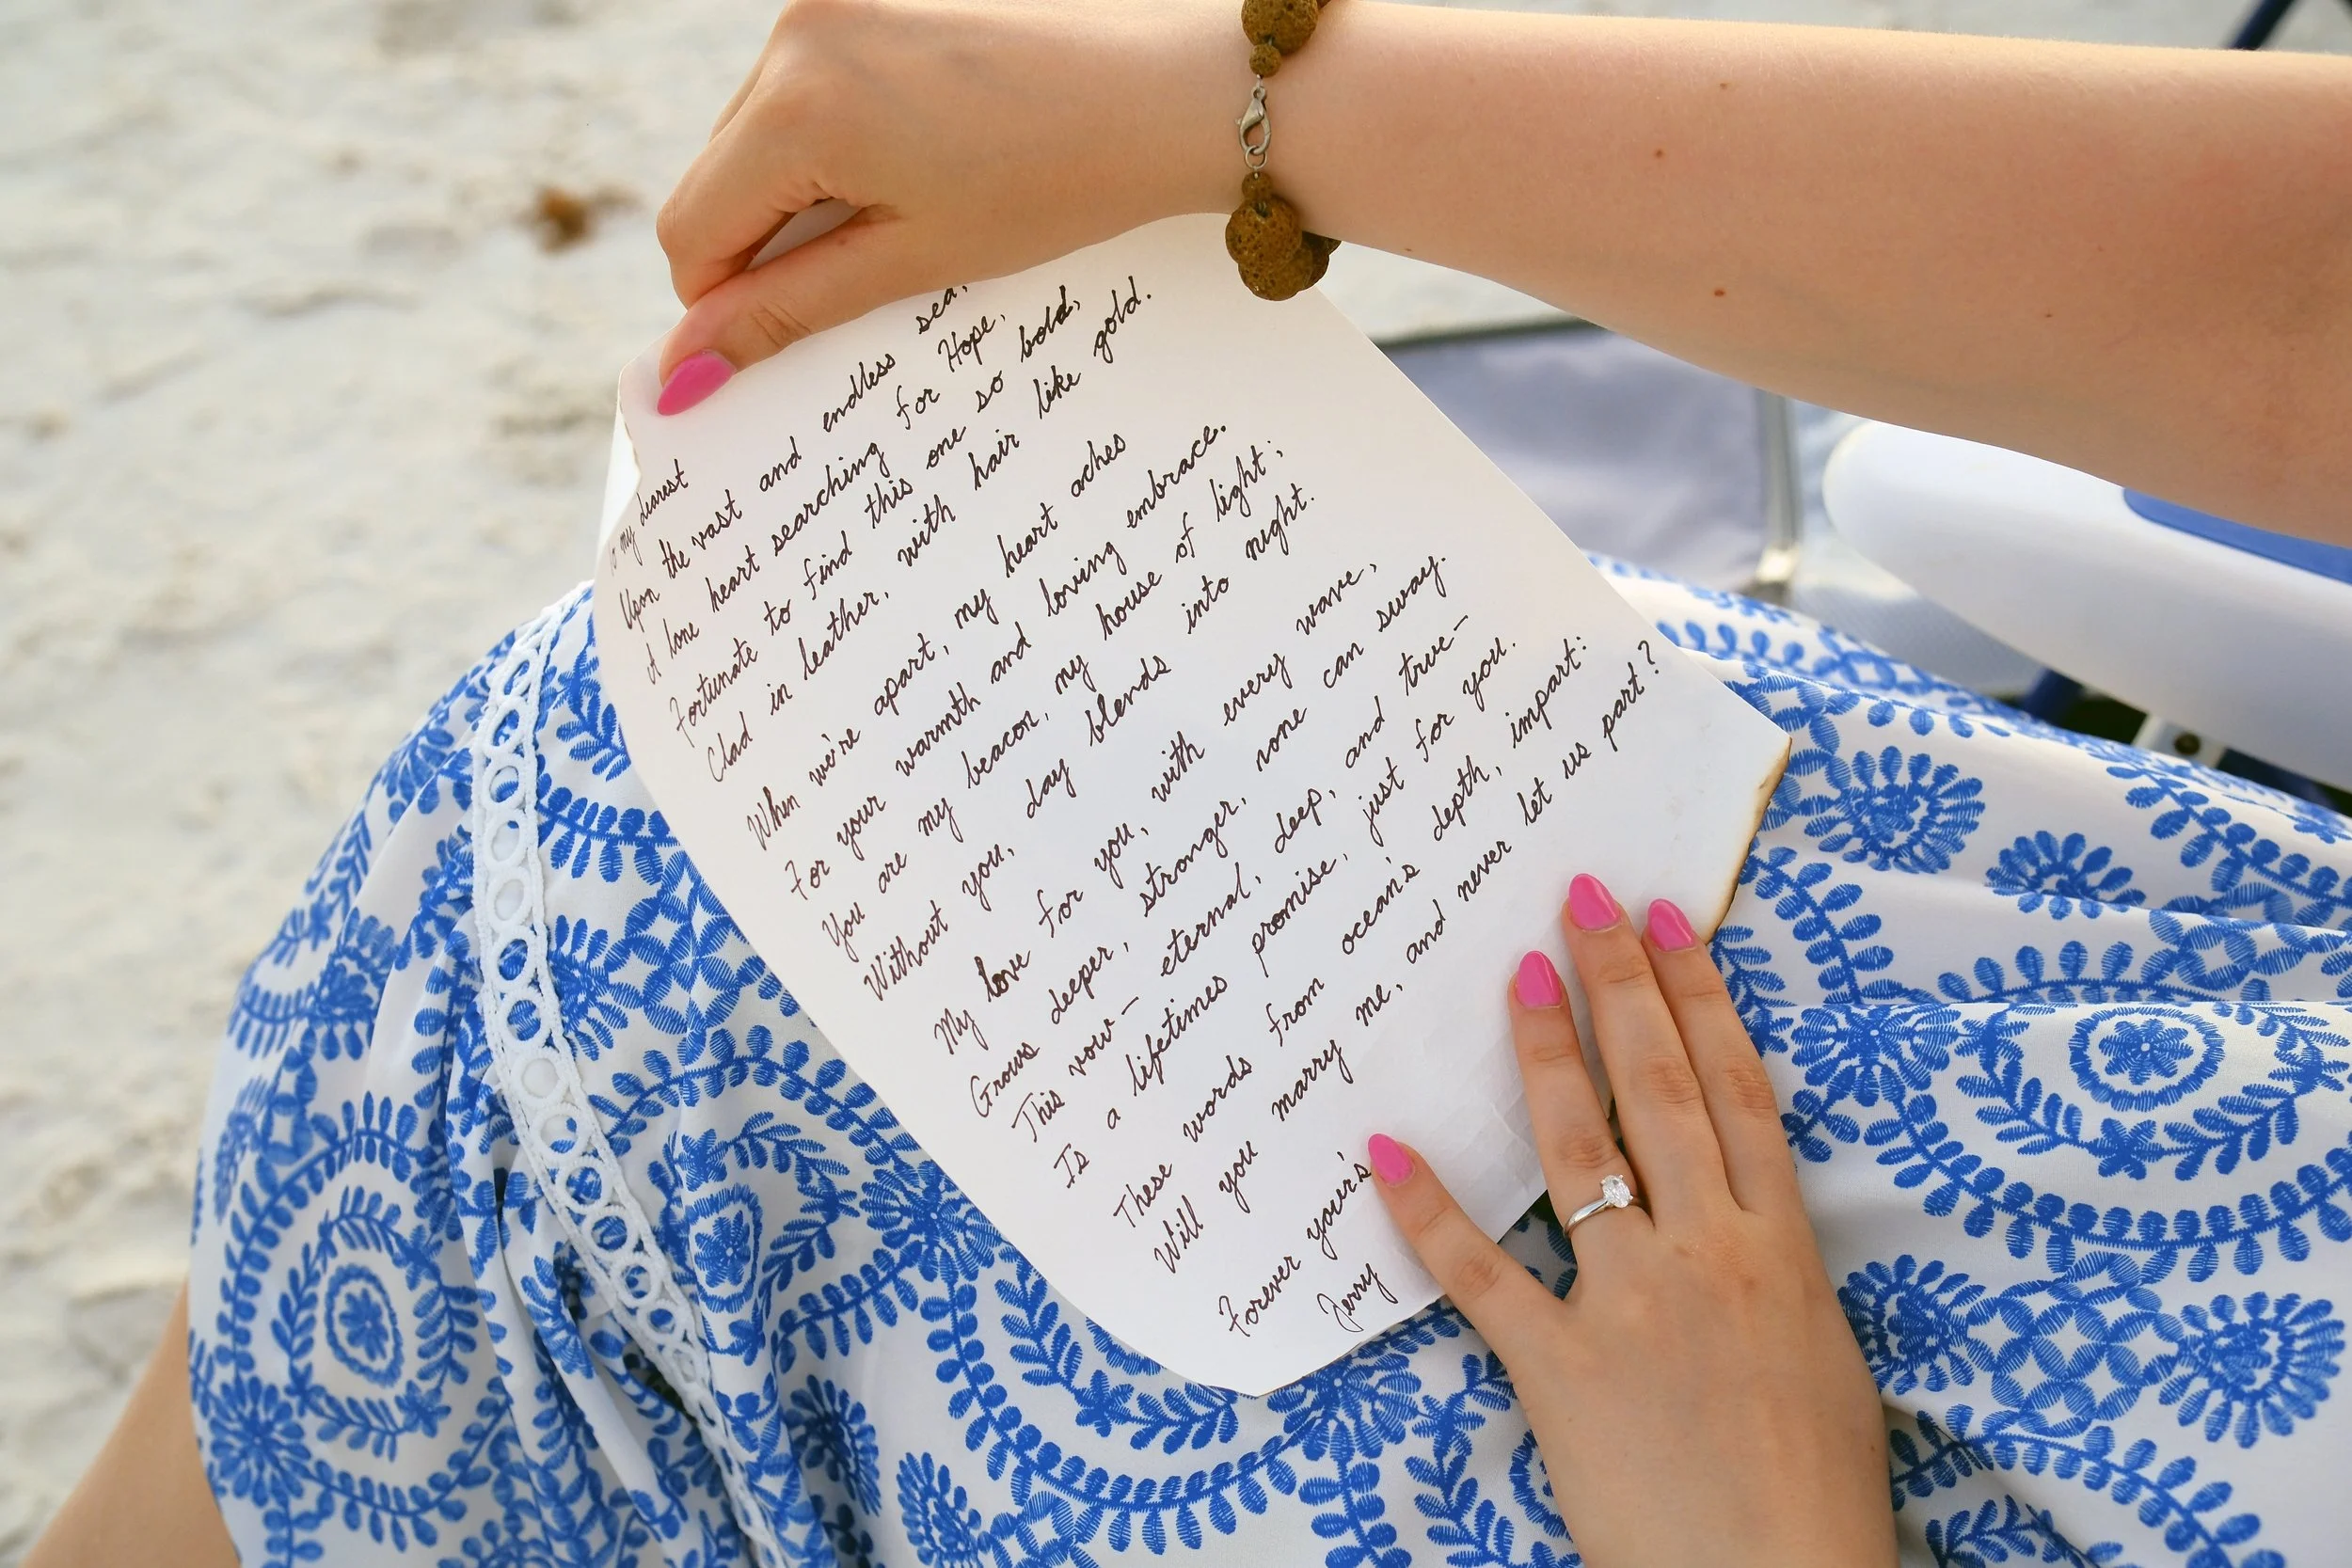 To my dearest
Upon the vast and endless sea,
A lone heart searching for Hope,
Fortunate to find this one so bold,
Clad in leather, with hair like gold.
When we're apart, my heart aches
For your warmth and loving embrace.
You are my beacon, my house of light;
Without you, day blends into night.
My love for you, with every wave,
Grows deeper, stronger, none can sway.
This vow— eternal, deep, and true—
Is a lifetimes promise, just for you.
These words from ocean's depth, impart:
Will you marry me, and never let us part?
Forever your's
Jerry